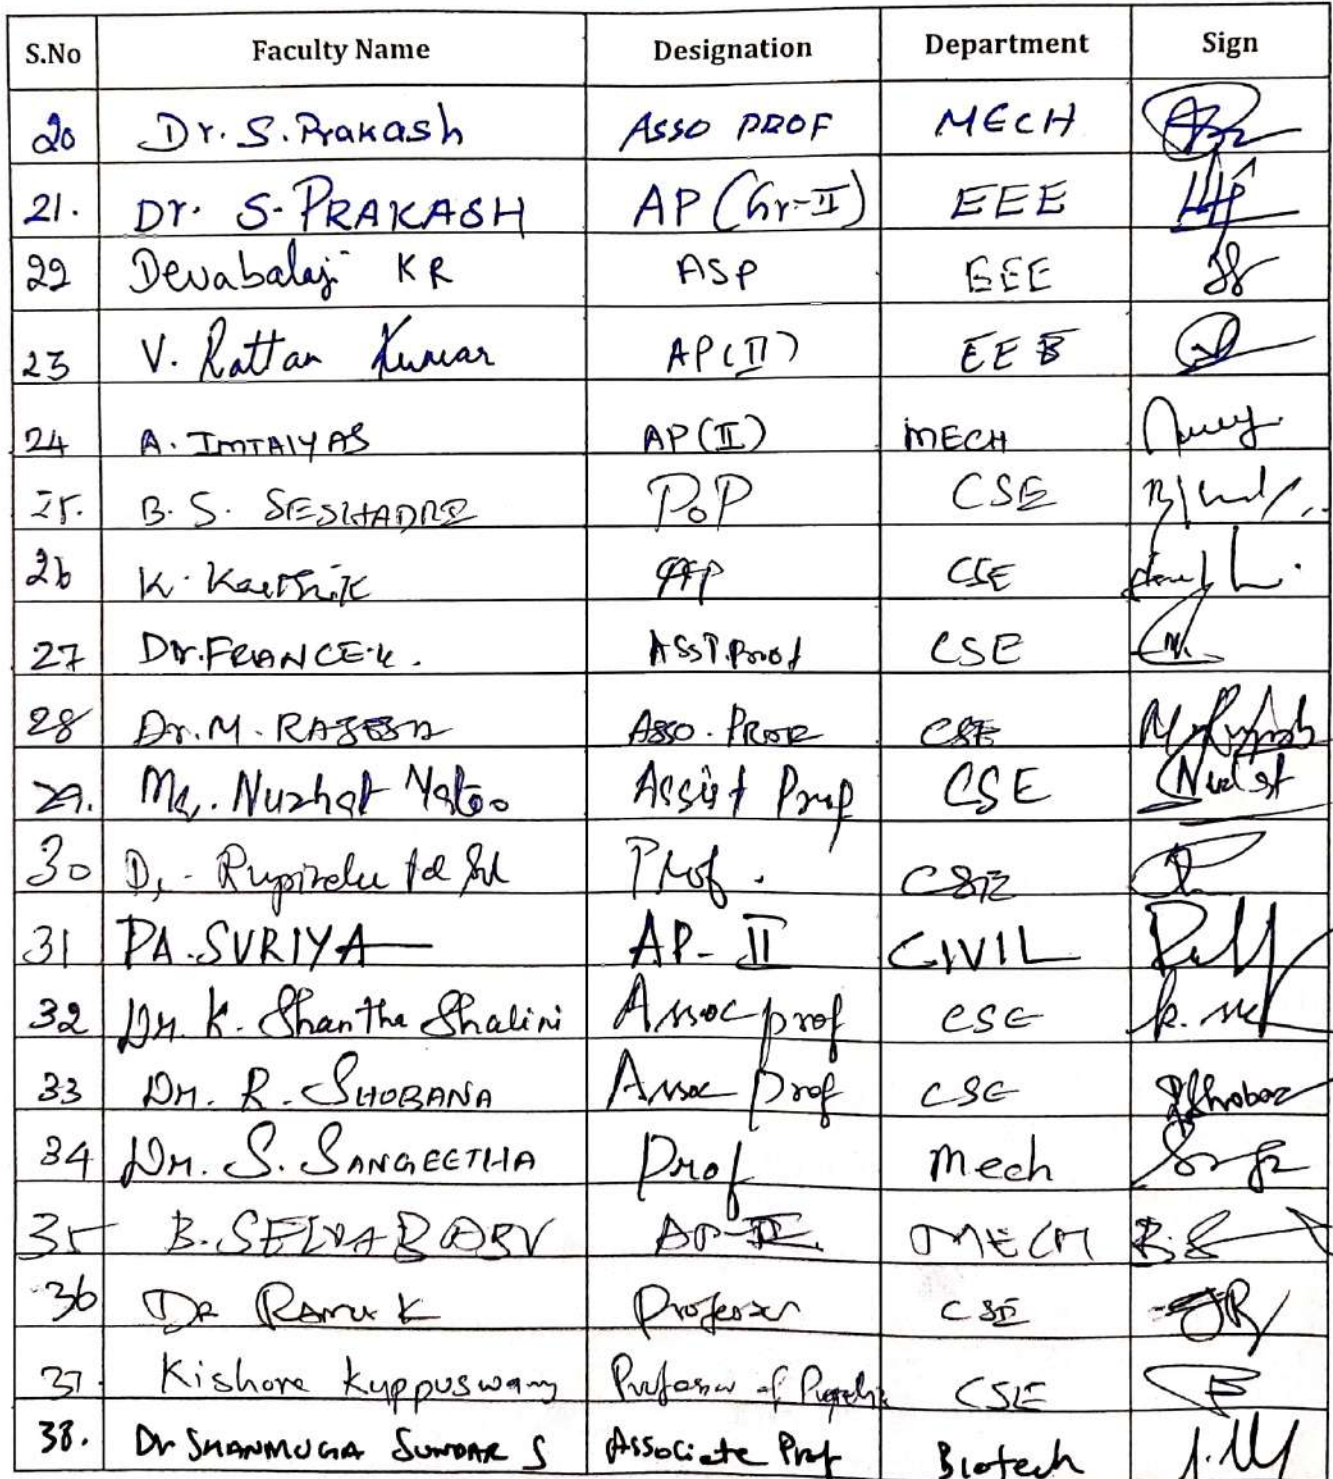 S.No Faculty Name Designation Department Sign
20 Dr. S. Prakash ASSO PROF MECH
21. Dr. S. PRAKASH AP (Gr-II) EEE
22 Devabalaji KR ASP EEE
23 V. Rattan Kumar AP(II) EEE
24 A. IMTAIYAS AP(II) MECH
25. B. S. SESHADRI PoP CSE
26 K. Karthik AP CSE
27 Dr. FRANCE.K. ASST.Prof CSE
28 Dr. M. RAJESH ASSO. PROF CSE
29. Ms. Nuzhat Yatoo Assist Prof CSE
30 Dr. Prof. CSE
31 PA.SURIYA AP-II CIVIL
32 Dr. K. Shantha Shalini Assoc prof CSE
33 Dr. R. SHOBANA Assoc Prof CSE
34 Dr. S. SANGEETHA Prof Mech
35 B. SELVABABU AP-II MECH
36 Dr Ramu K Professor CSE
37 Kishore Kuppuswamy Professor of CSE
38. Dr SHANMUGA SUNDAR S Associate Prof Biotech